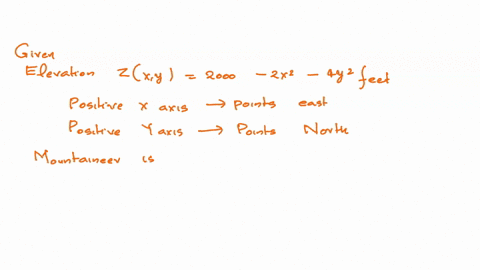 Given
Elevation Z(x,y) = 2000 - 2x² - 4y² feet
Positive x axis → points east
Positive Y axis → Points North
Mountaineer is